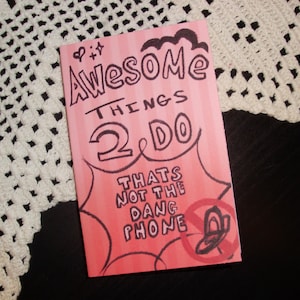 AWESOME
THINGS
2 DO
THATS
NOT THE
DANG
PHONE